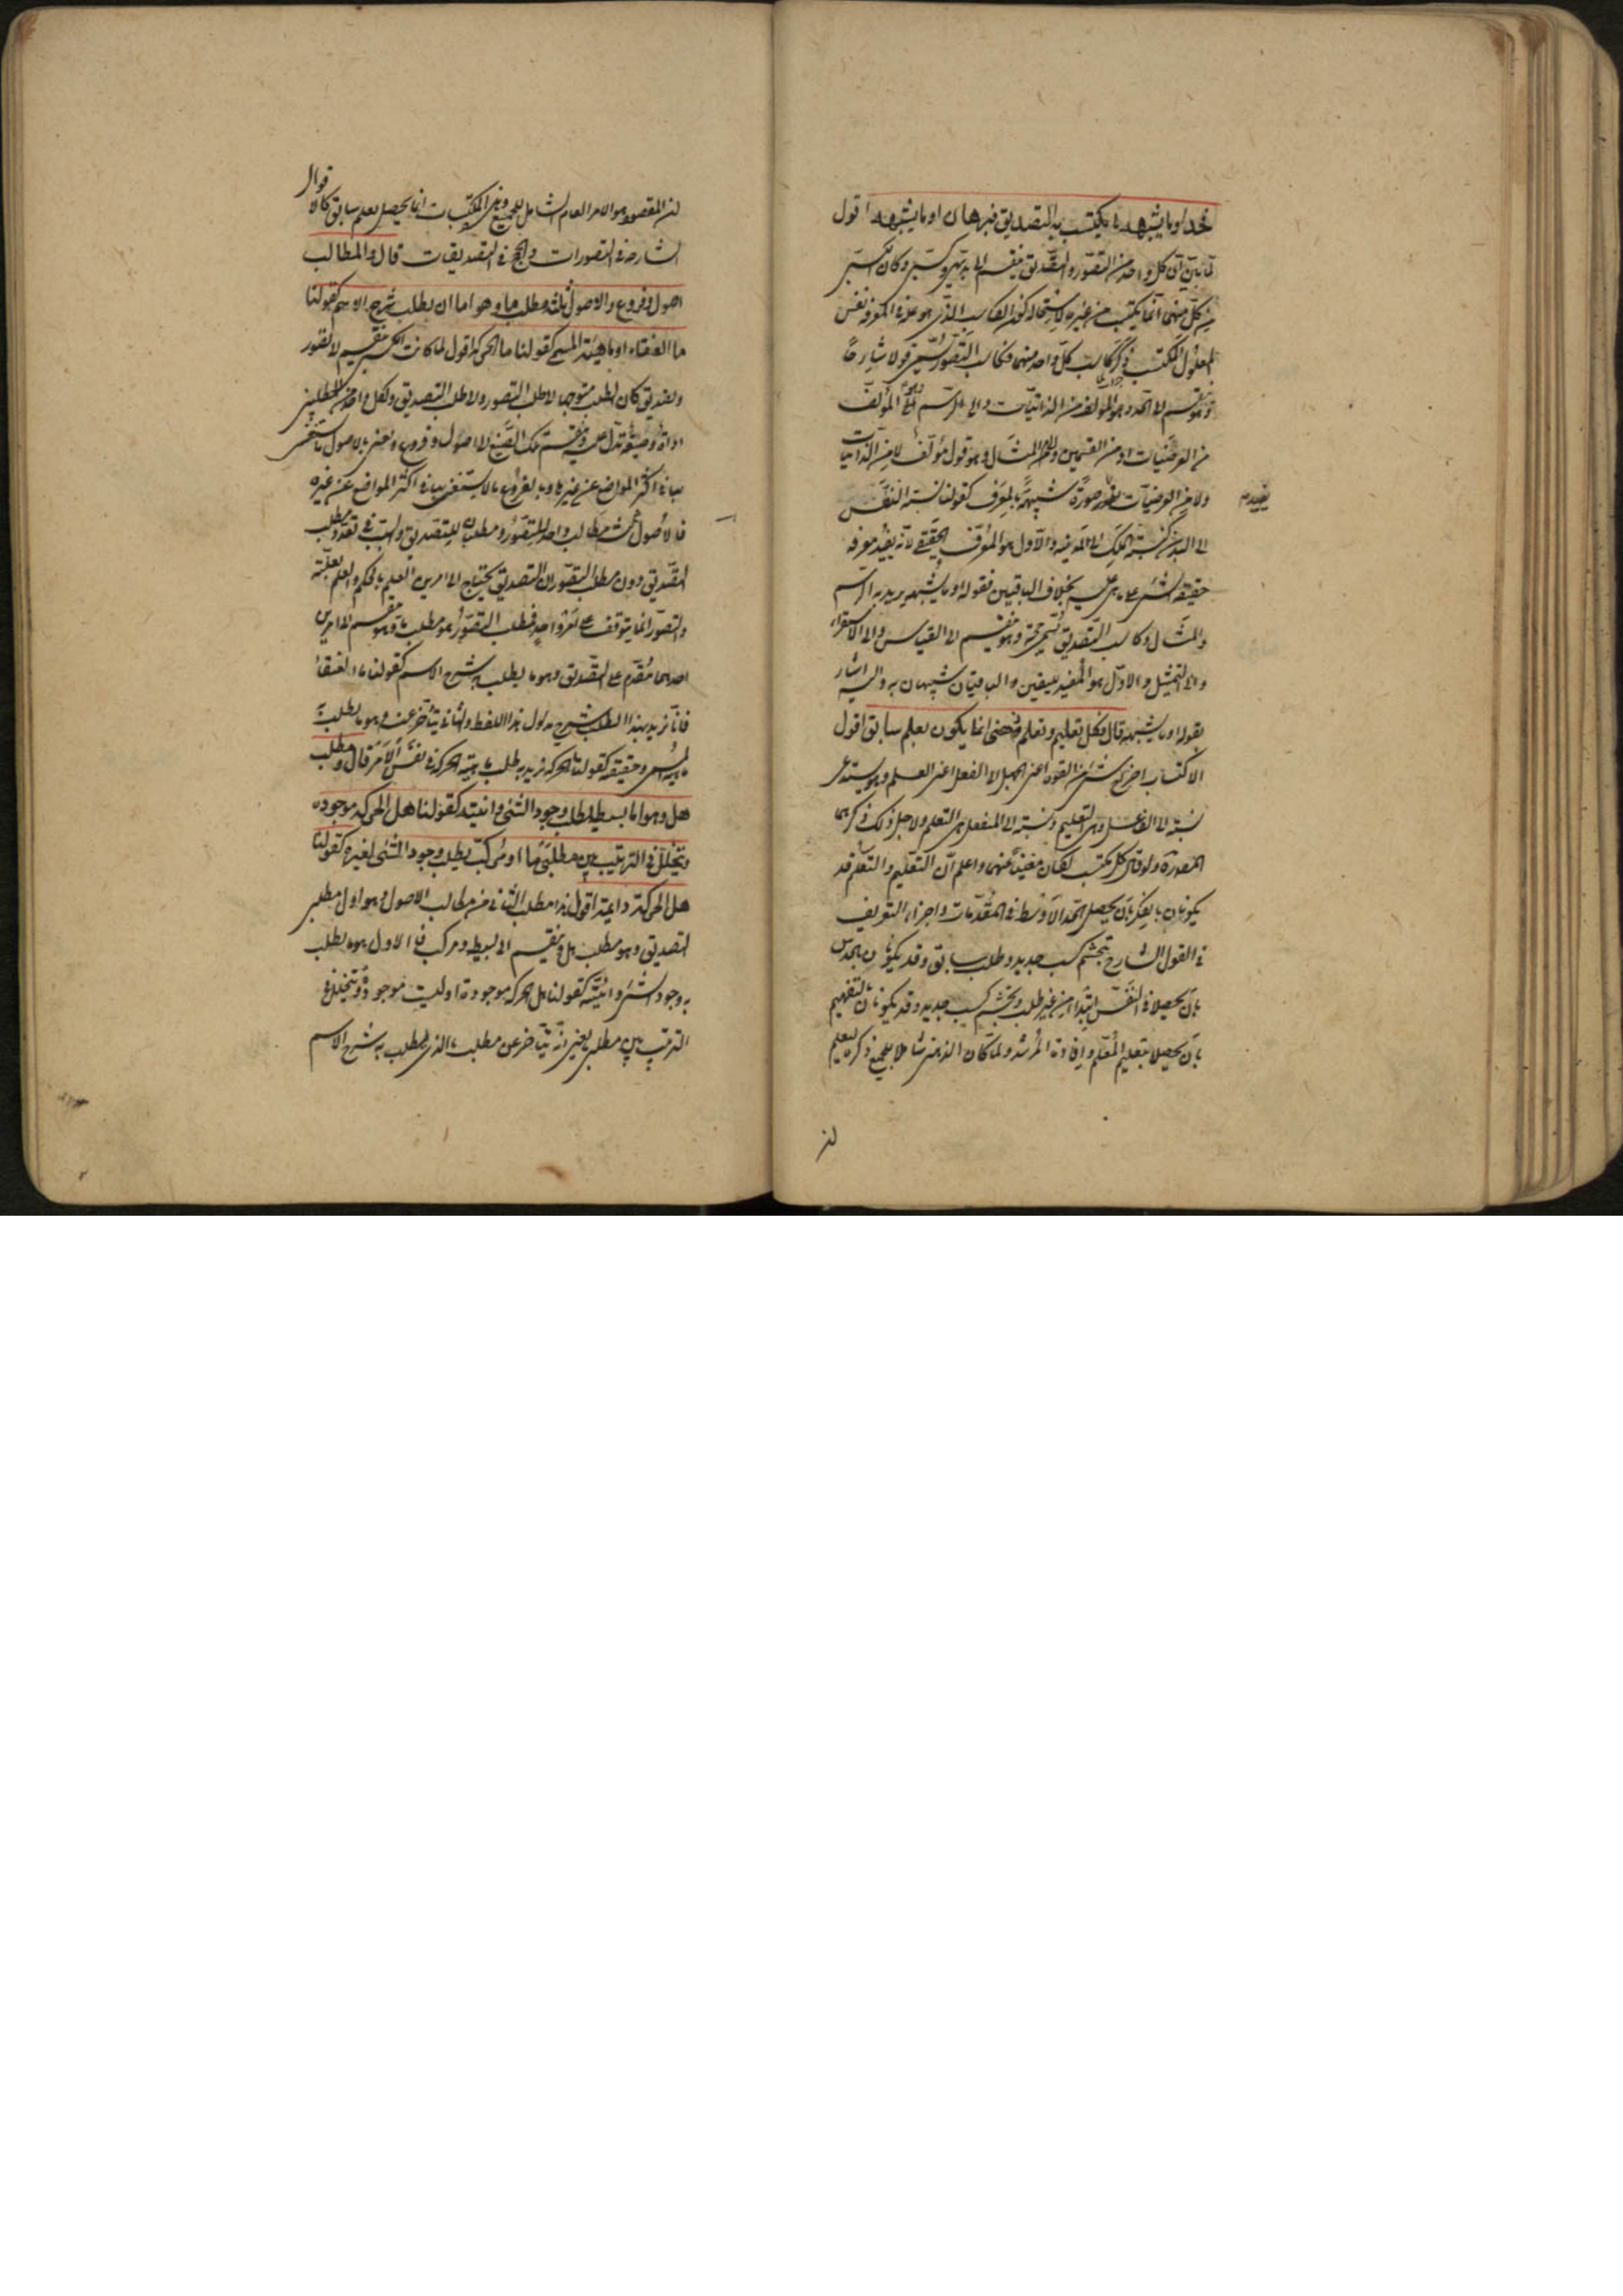 فحد او ما يشبهه وما يكتسب به التصديق فبرهان او ما يشبهه اقول
لما بيّن ان كل واحد من التصوّر والتصديق ينقسم الى بديهي وكسبي وكان الكسبي
من كل منهما انما يكتسب من غيره لاستحالة كون الكاسب الذي هو علة في المعرفة نفس
المعلول المكتسب ذكر كاسب كل واحد منهما فكاسب التصور يسمى قولا شارحا
وهو ينقسم الى الحد وهو المؤلف من الذاتيات والى الرسم وهو المؤلف
من العرضيات او من القسمين والى المثال وهو قول مؤلف لا من الذاتيات
ولا من العرضيات يفيد صورة شبيهة بالمعرف كقولنا نسبة النفس
الى البدن كنسبة الملك الى المدينة والاول هو المعرف الحقيقي لانه يفيد معرفة
حقيقة الشيء على ما هي عليه بخلاف الباقيين فقوله او ما يشبهه يريد به الرسم
والمثال وكاسب التصديق يسمى حجة وهو ينقسم الى القياس والى الاستقراء
والى التمثيل والاول هو المفيد لليقين والباقيان شبيهان به واليه اشار
بقوله او ما يشبهه قال فكل تعليم وتعلم ذهني انما يكون بعلم سابق اقول
الاكتساب اخراج شيء من القوة اعني الجهل الى الفعل اعني العلم وهو يستدعي
نسبة الى الفاعل وهي التعليم ونسبة الى المنفعل هي التعلم ولاجل ذلك ذكرهما
المصنف ولو قال كل مكتسب لكان مغنيا عنهما واعلم ان التعليم والتعلم قد
يكونان بالفكر بان يحصل الحد الاوسط في المقدمات واجزاء التعريف
في القول الشارح بتجشم كسب جديد وطلب سابق وقد يكونان بالحدس
بان يحصلا في النفس ابتداء من غير طلب وتجشم كسب جديد وقد يكونان بالتفهيم
بان يحصلا بتعليم المعلم وافادة المرشد ولما كان الذهني شاملا للجميع ذكره ليعلم
لان
ان المقصود هو الامر العام الشامل للجميع وهذه المكتسبات انما يحصل بعلم سابق كالاقوال
الشارحة في التصورات والحجج في التصديقات قال والمطالب
اصول وفروع والاصول ثلثة مطلب ما وهو اما ان يطلب شرح الاسم كقولنا
ما العنقاء او ماهية المسمى كقولنا ما الحركة اقول لما كانت الحكمة تنقسم الى تصور
وتصديق كان الطلب متوجها الى طلب التصور والى طلب التصديق ولكل واحد من المطلبين
اداة وصيغة تدل عليه وتنقسم تلك الصيغ الى اصول وفروع ونعني بالاصول ما يستغنى
بها في اكثر المواضع عن غيرها وبالفروع ما لا يستغنى بها في اكثر المواضع عن غيره
فالاصول ثلث مطالب واحد للتصور ومطلبان للتصديق والسبب في تعدد مطلب
التصديق دون مطلب التصور ان التصديق يحتاج الى امرين العلم بالحكم والعلم بعلته
والتصور انما يتوقف على تصور واحد فمطلب التصور هو مطلب ما وهو ينقسم الى امرين
احدهما مقدم على التصديق وهو ما يطلب به شرح الاسم كقولنا ما العنقاء
فانا نريد بهذا الطلب شرح مدلول هذا اللفظ والثاني يتأخر عنه وهو ما يطلب به
ماهية الشيء وحقيقته كقولنا ما الحركة نريد به طلب ماهية الحركة في نفس الامر قال ومطلب
هل وهو اما بسيط يطلب وجود الشيء وانيته كقولنا هل الحركة موجودة
ويتخلل في الترتيب بين مطلبي ما او مركب يطلب وجود الشيء لغيره كقولنا
هل الحركة دائمة اقول هذا مطلب الثاني من مطالب الاصول وهو اول مطلبي
التصديق وهو مطلب هل وينقسم الى بسيط ومركب فالاول هو ما يطلب
به وجود الشيء وانيته كقولنا هل الحركة موجودة او ليست موجودة ويتخلل في
الترتيب بين مطلبي ما يعني انه يتأخر عن مطلب ما الذي يطلب به شرح الاسم